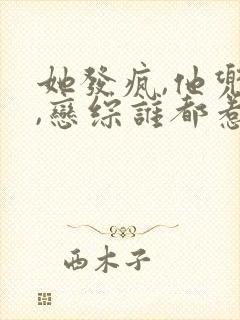 她發瘋,他兜
,戀綜誰都惹
西木子